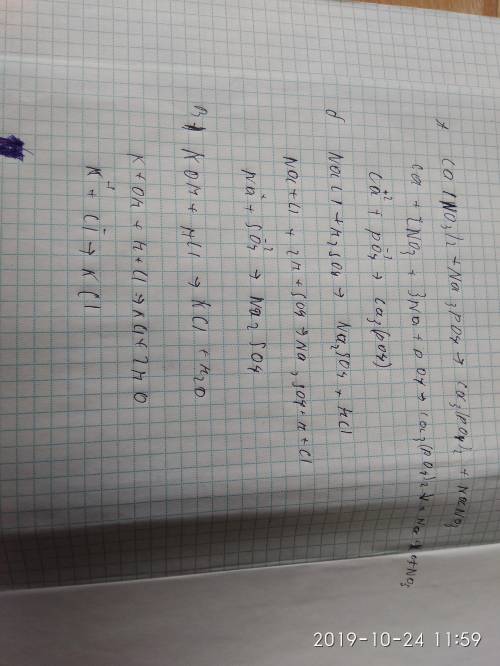 Ca(NO3)2 + Na3PO4 → Ca3(PO4)2 + NaNO3
Ca + 2NO3 + 3Na + PO4 → Ca3(PO4)2 + Na + NO3
Ca+2 + PO4-3 → Ca3(PO4)
б NaCl + H2SO4 → Na2SO4 + HCl
Na + Cl + 2H + SO4 → Na2SO4 + H + Cl
Na+ + SO4-2 → Na2SO4
в) KOH + HCl → KCl + H2O
K + OH + H + Cl → KCl + 2H O
K+ + Cl- → KCl
2019-10-24 11:59